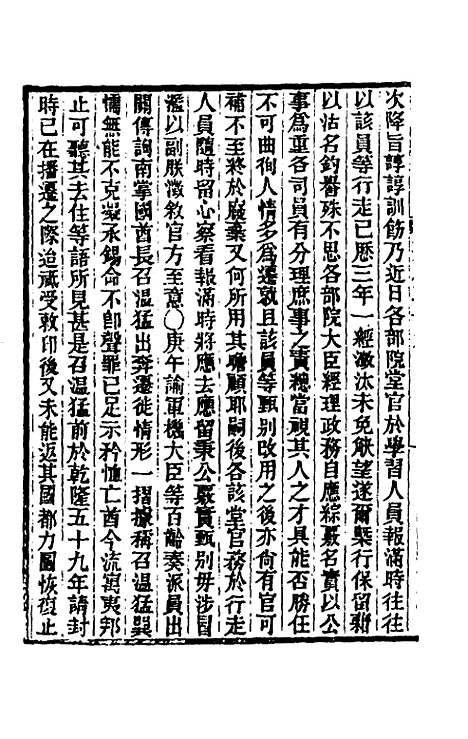 次降旨諄諄訓飭乃近日各部院堂官於學習人員報滿時往往
以該員等行走已歷三年一經澈汰未免觖望遂爾槩行保留藉
以沽名釣譽殊不思各部院大臣經理政務自應綜覈名實以公
事爲重各司員有分理庶事之責總當視其人之才具能否勝任
不可曲徇人情多爲遷就且該員等甄別改用之後亦尙有官可
補不至終於廢棄又何所用其瞻顧耶嗣後各該堂官務於行走
人員隨時留心察看報滿時將應去應留秉公嚴實甄別毋涉冒
濫以副朕澂敘官方至意〇庚午諭軍機大臣等百齡奏派員出
關傳詢南掌國酋長召溫猛出奔遷徙情形一摺據稱召溫猛巽
懦無能不克㱕承錫命不卽聲罪已足示矜恤亡酋今流寓夷邦
止可聽其去住等語所見甚是召溫猛前於乾隆五十九年請封
時已在播遷之際迨祗受敕印後又未能返其國都力圖恢復止